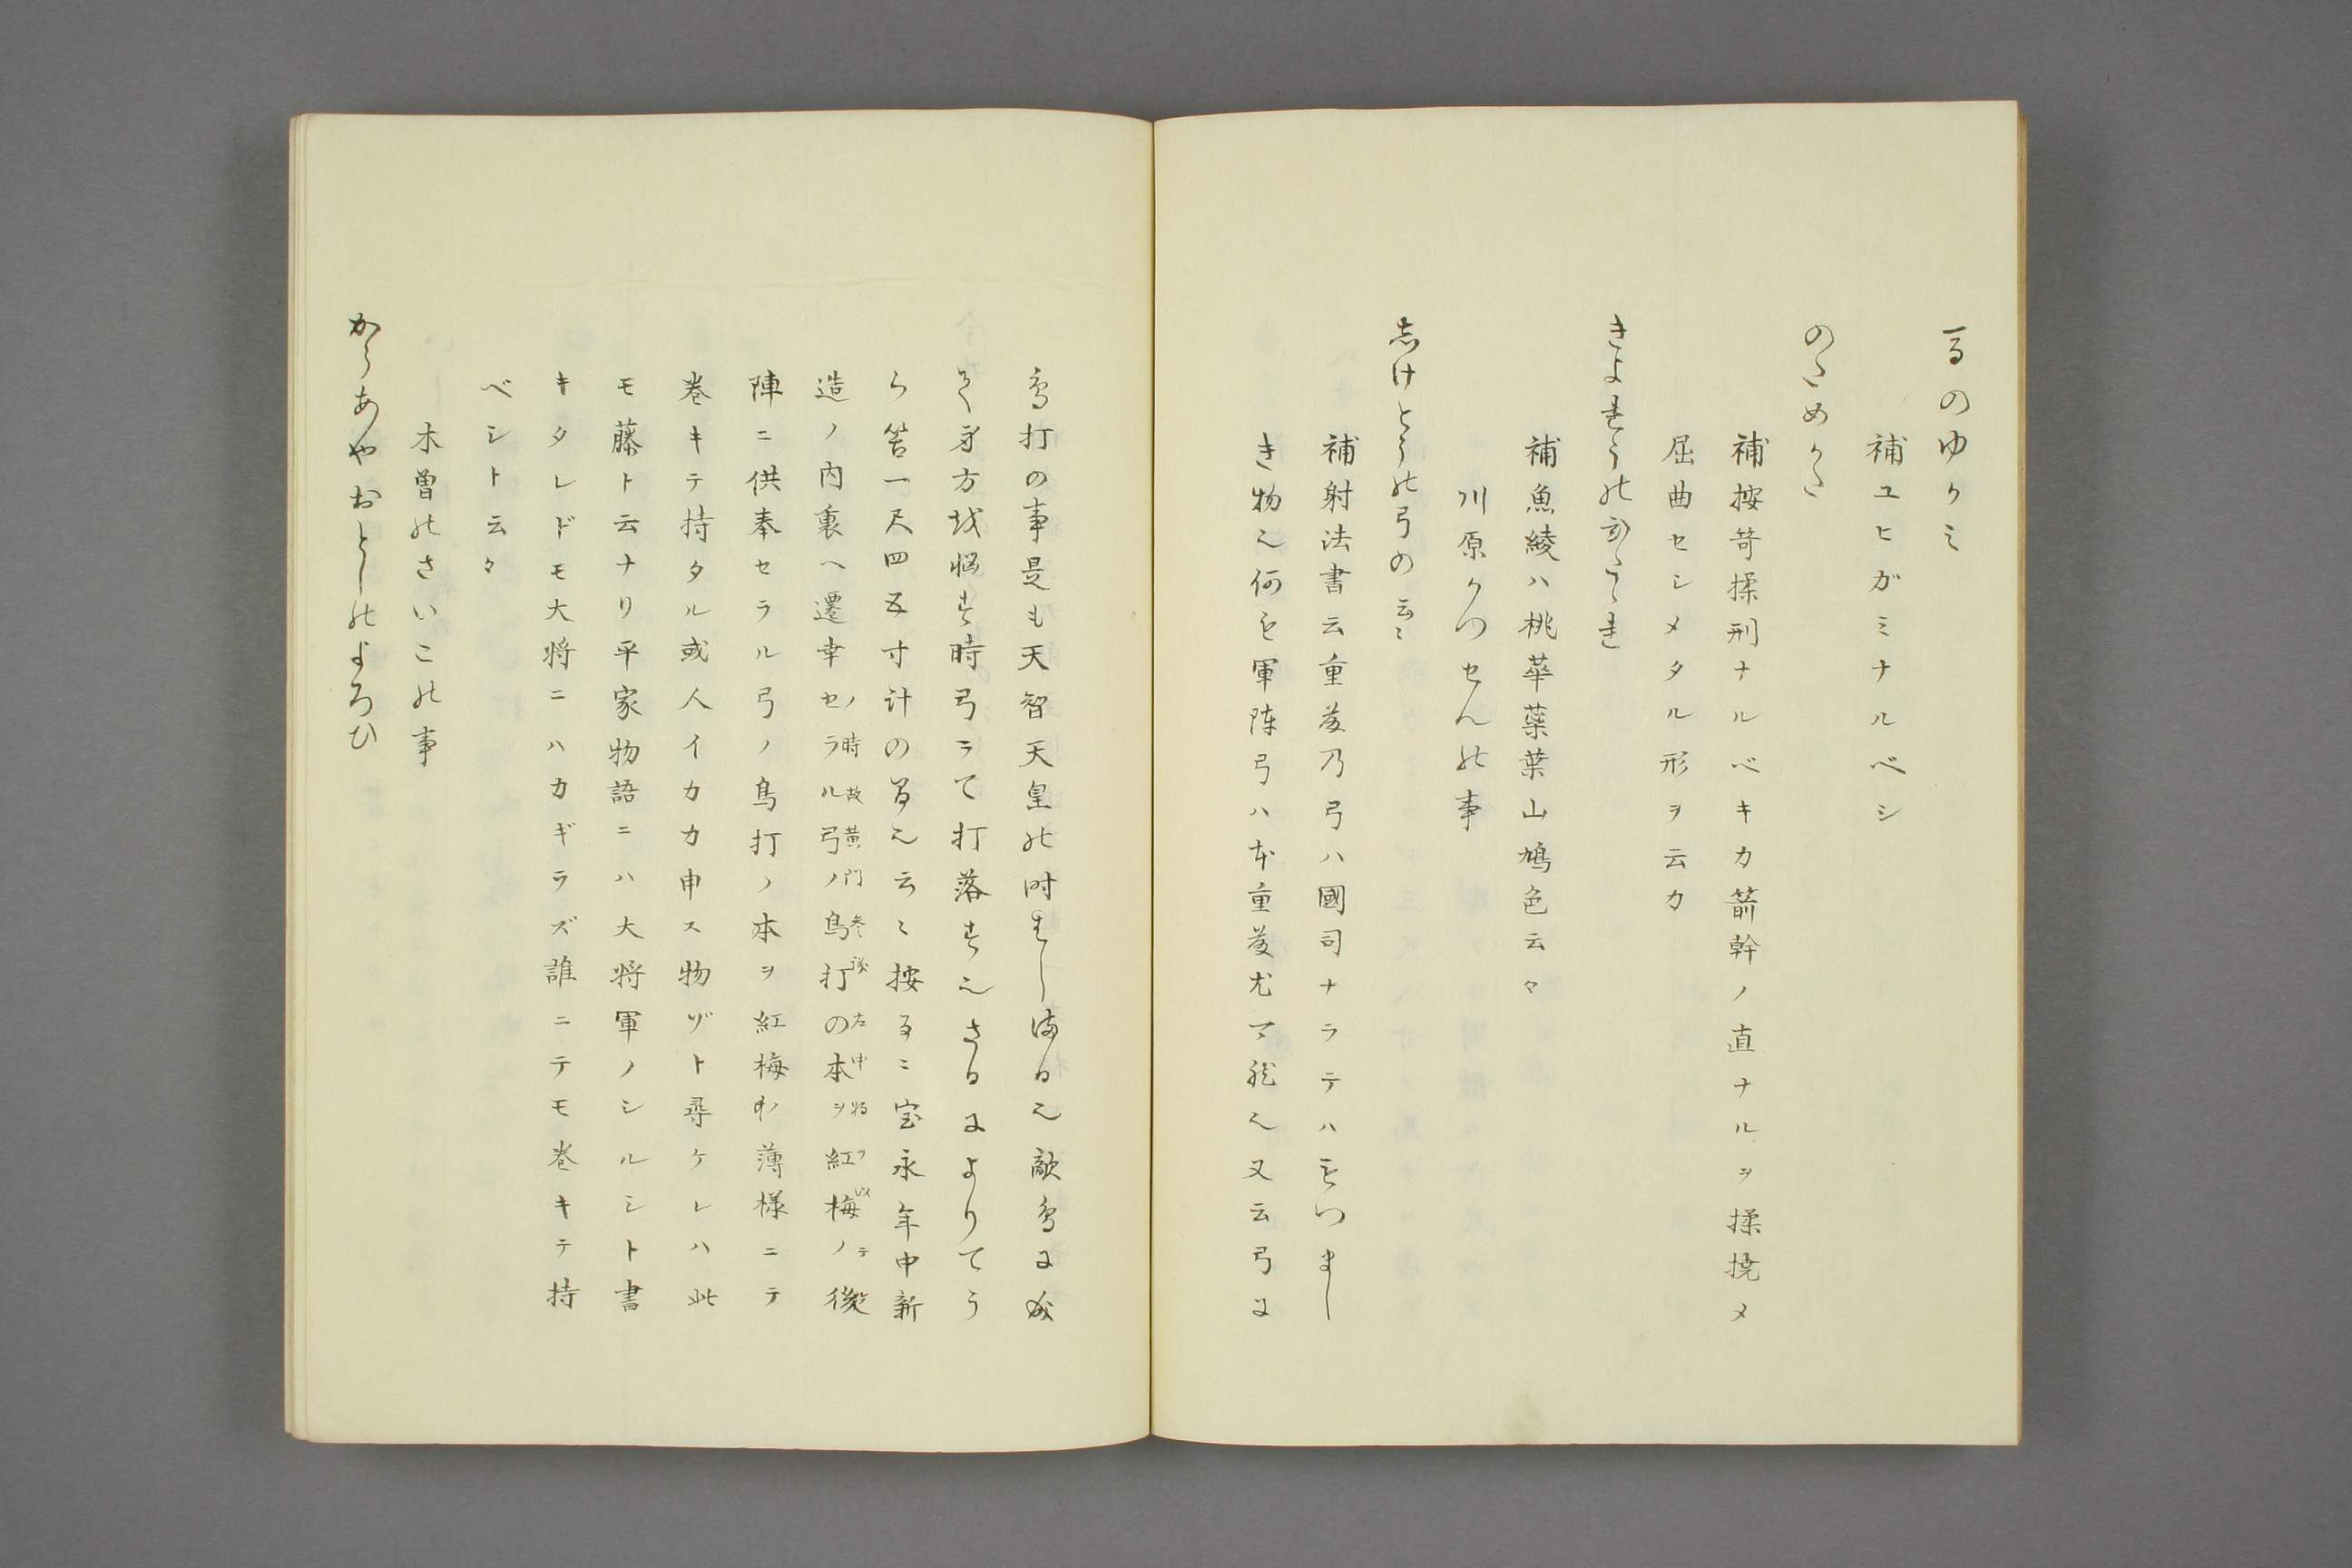 るのゆかミ
補ユヒガミナルベシ
のためかた
補按笴揉刑ナルベキカ箭幹ノ直ナルヲ揉撓メ
屈曲セシメタル形ヲ云カ
きよれうのひたゝれ
補魚綾ハ桃華蘂葉山鳩色云々
川原かつせんの事
志けとうの弓の云〻
補射法書云重䓾乃弓ハ國司ナラテハもつまし
き物也何も軍陣弓ハ本重䓾尤マ然也又云弓に
鳥打の事是も天智天皇の時
方越悩す時弓にて打落す也さるによりてう
ら筈一尺四五寸計の間也云〻按るニ宝永年中新
造ノ内裏ヘ遷幸ノ時故黄門参議左中将ヲ以テ
セラル弓ノ鳥打の本ヲ紅梅ノ後
陣ニ供奉セラル弓ノ鳥打ノ本ヲ紅梅ノ薄様ニテ
巻キテ持タル或人イカカ申ス物ゾト尋ケレハ此
モ藤ト云ナリ平家物語ニハ大将軍ノシルシト書
キタレドモ大将ニハカギラズ誰ニテモ巻キテ持
ベシト云々
木曽のさいこの事
からあやおとしのよろひ